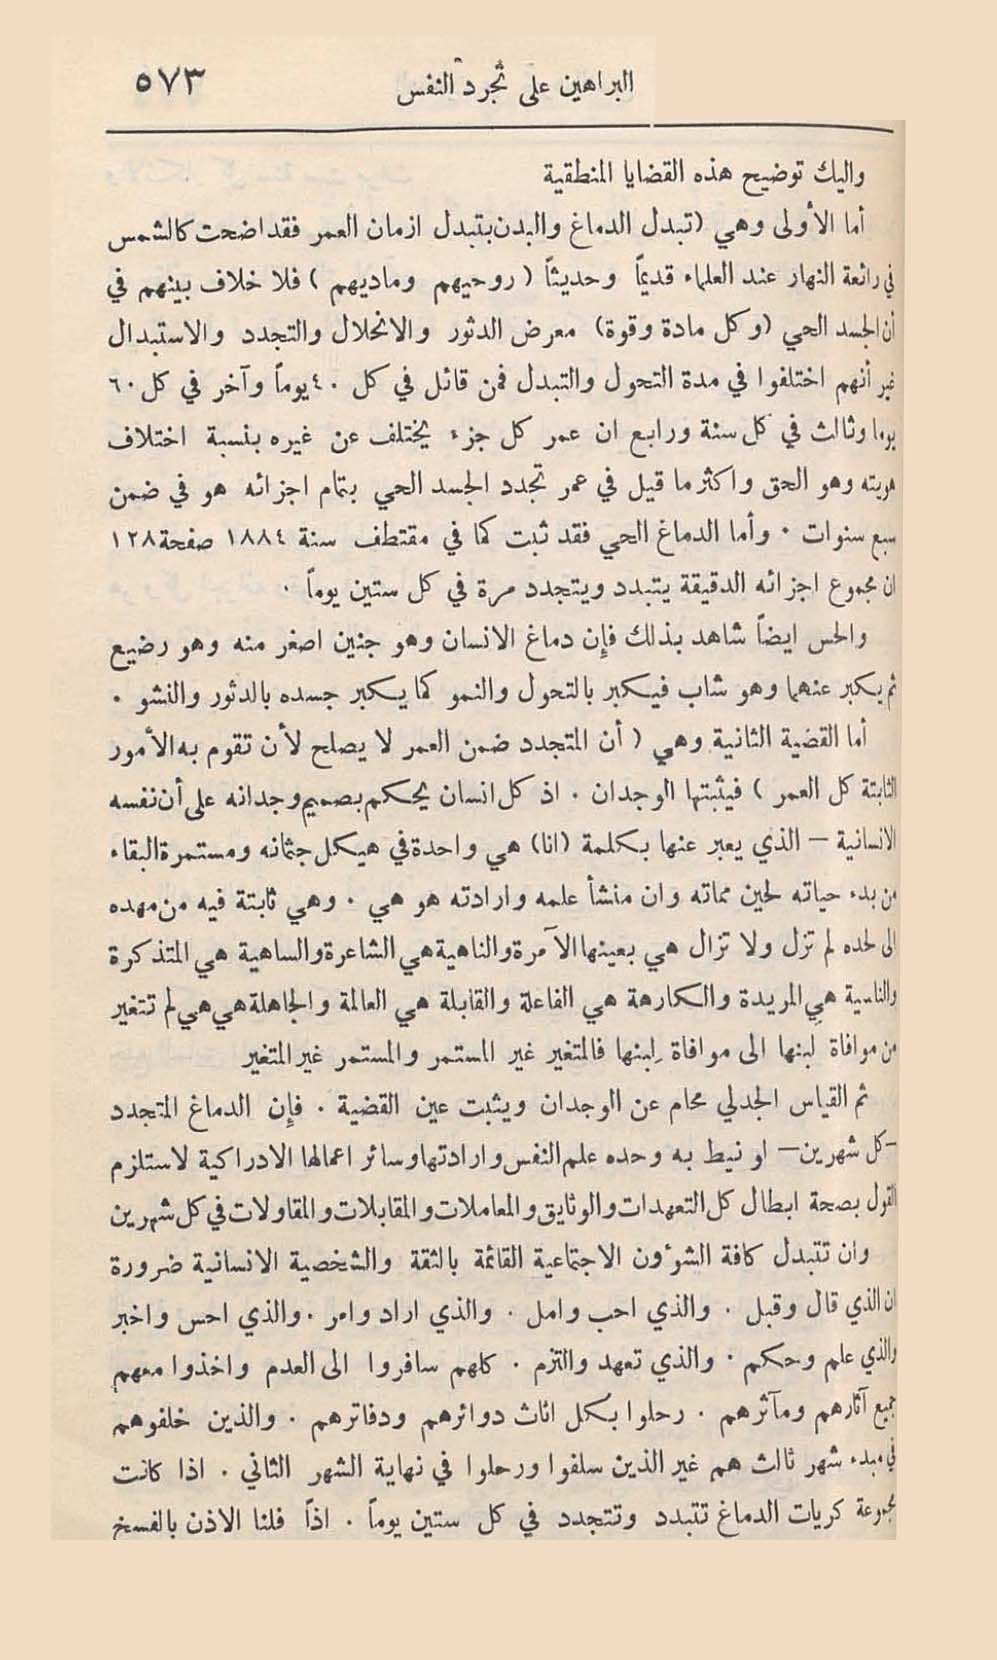 البراهين على تجرد النفس ٥٧٣
واليك توضيح هذه القضايا المنطقية
أما الأولى وهي (تبدل الدماغ والبدن بتبدل ازمان العمر فقد اضحت كالشمس
في رائعة النهار عند العلماء قديماً وحديثاً (روحيهم وماديهم) فلا خلاف بينهم في
أن الجسد الحي (وكل مادة وقوة) معرض الدثور والانحلال والتجدد والاستبدال
غير أنهم اختلفوا في مدة التحول والتبدل فمن قائل في كل ٤٠ يوماً وآخر في كل ٦٠
يوما وثالث في كل سنة ورابع ان عمر كل جزء يختلف عن غيره بنسبة اختلاف
هويته وهو الحق واكثر ما قيل في عمر تجدد الجسد الحي بتمام اجزائه هو في ضمن
سبع سنوات . وأما الدماغ الحي فقد ثبت كما في مقتطف سنة ١٨٨٤ صفحة ١٢٨
ان مجموع اجزائه الدقيقة يتبدد ويتجدد مرة في كل ستين يوماً .
والحس ايضاً شاهد بذلك فإن دماغ الانسان وهو جنين اصغر منه وهو رضيع
ثم يكبر عنهما وهو شاب فيكبر بالتحول والنمو كما يكبر جسده بالدثور والنشو .
أما القضية الثانية وهي ( أن المتجدد ضمن العمر لا يصلح لأن تقوم به الأمور
الثابتة كل العمر ) فيثبتها الوجدان . اذ كل انسان يحكم بصميم وجدانه على أن نفسه
الانسانية – الذي يعبر عنها بكلمة (انا) هي واحدة في هيكل جثمانه ومستمرة البقاء
من بدء حياته لحين مماته وان منشأ علمه وارادته هو هي . وهي ثابتة فيه من مهده
الى لحده لم تزل ولا تزال هي بعينها الآمرة والناهية هي الشاعرة والساهية هي المتذكرة
والناسية هي المريدة والكارهة هي الفاعلة والقابلة هي العالمة والجاهلة هي هي لم تتغير
من موافاة لبنها الى موافاة لِبنها فالمتغير غير المستمر والمستمر غير المتغير
ثم القياس الجدلي محام عن الوجدان ويثبت عين القضية . فإن الدماغ المتجدد
–كل شهرين– او نيط به وحده علم النفس وارادتها وسائر اعمالها الادراكية لاستلزم
القول بصحة ابطال كل التعهدات والوثايق والمعاملات والمقابلات والمقاولات في كل شهرين
وان تتبدل كافة الشؤون الاجتماعية القائمة بالثقة والشخصية الانسانية ضرورة
ان الذي قال وقبل . والذي احب وامل . والذي اراد وامر . والذي احس واخبر
والذي علم وحكم . والذي تعهد والتزم . كلهم سافروا الى العدم واخذوا معهم
جميع آثارهم ومآثرهم . رحلوا بكل اثاث دوائرهم ودفاترهم . والذين خلفوهم
في مبدء شهر ثالث هم غير الذين سلفوا ورحلوا في نهاية الشهر الثاني . اذا كانت
مجموعة كريات الدماغ تتبدد وتتجدد في كل ستين يوماً . اذاً فلنا الاذن بالفسخ